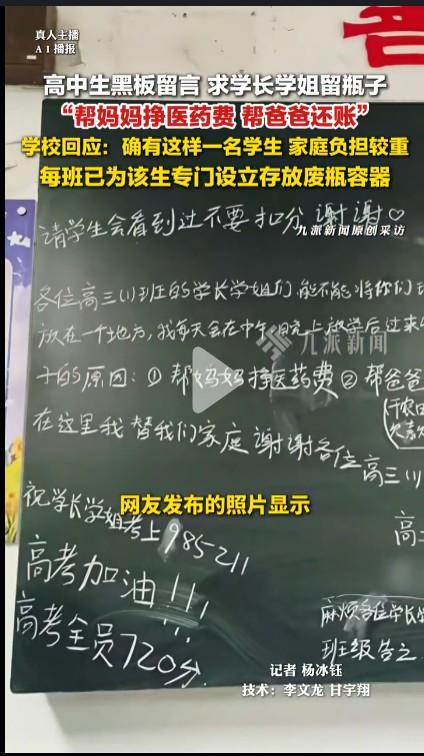 真人主播
AI播报
高中生黑板留言 求学长学姐留瓶子
“帮妈妈挣医药费 帮爸爸还账”
学校回应：确有这样一名学生 家庭负担较重
每班已为该生专门设立存放废瓶容器
请学生会看到过不要扣分 谢谢♡
九派新闻原创采访
各位高三(1)班的学长学姐们,能不能将你们
放在一个地方,我每天会在中午,晚上放学后过来
九派新闻
的原因：① 帮妈妈挣医药费 ② 帮爸爸
欠款
在这里我替我们家庭谢谢各位高三(1)
网友发布的照片显示
祝学长学姐考上985211
高考加油!!!
高考全员720分.
高三
麻烦各位学长
班级告之
记者 杨冰钰
技术：李文龙 甘宇翔